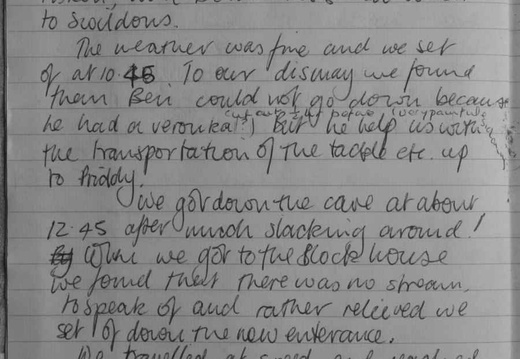 to Swildons.
The weather was fine and we set
of at 10.45 To our dismay we found
them Ben could not go down because
he had a veronka(?) but he help us with
the transportation of the tackle etc. up
to Priddy.
We got down the cave at about
12.45 after much slacking around!
When we got to the Block house
we found that there was no stream,
to speak of and rather relieved we
set of down the new enterance.
We travelled at speed and